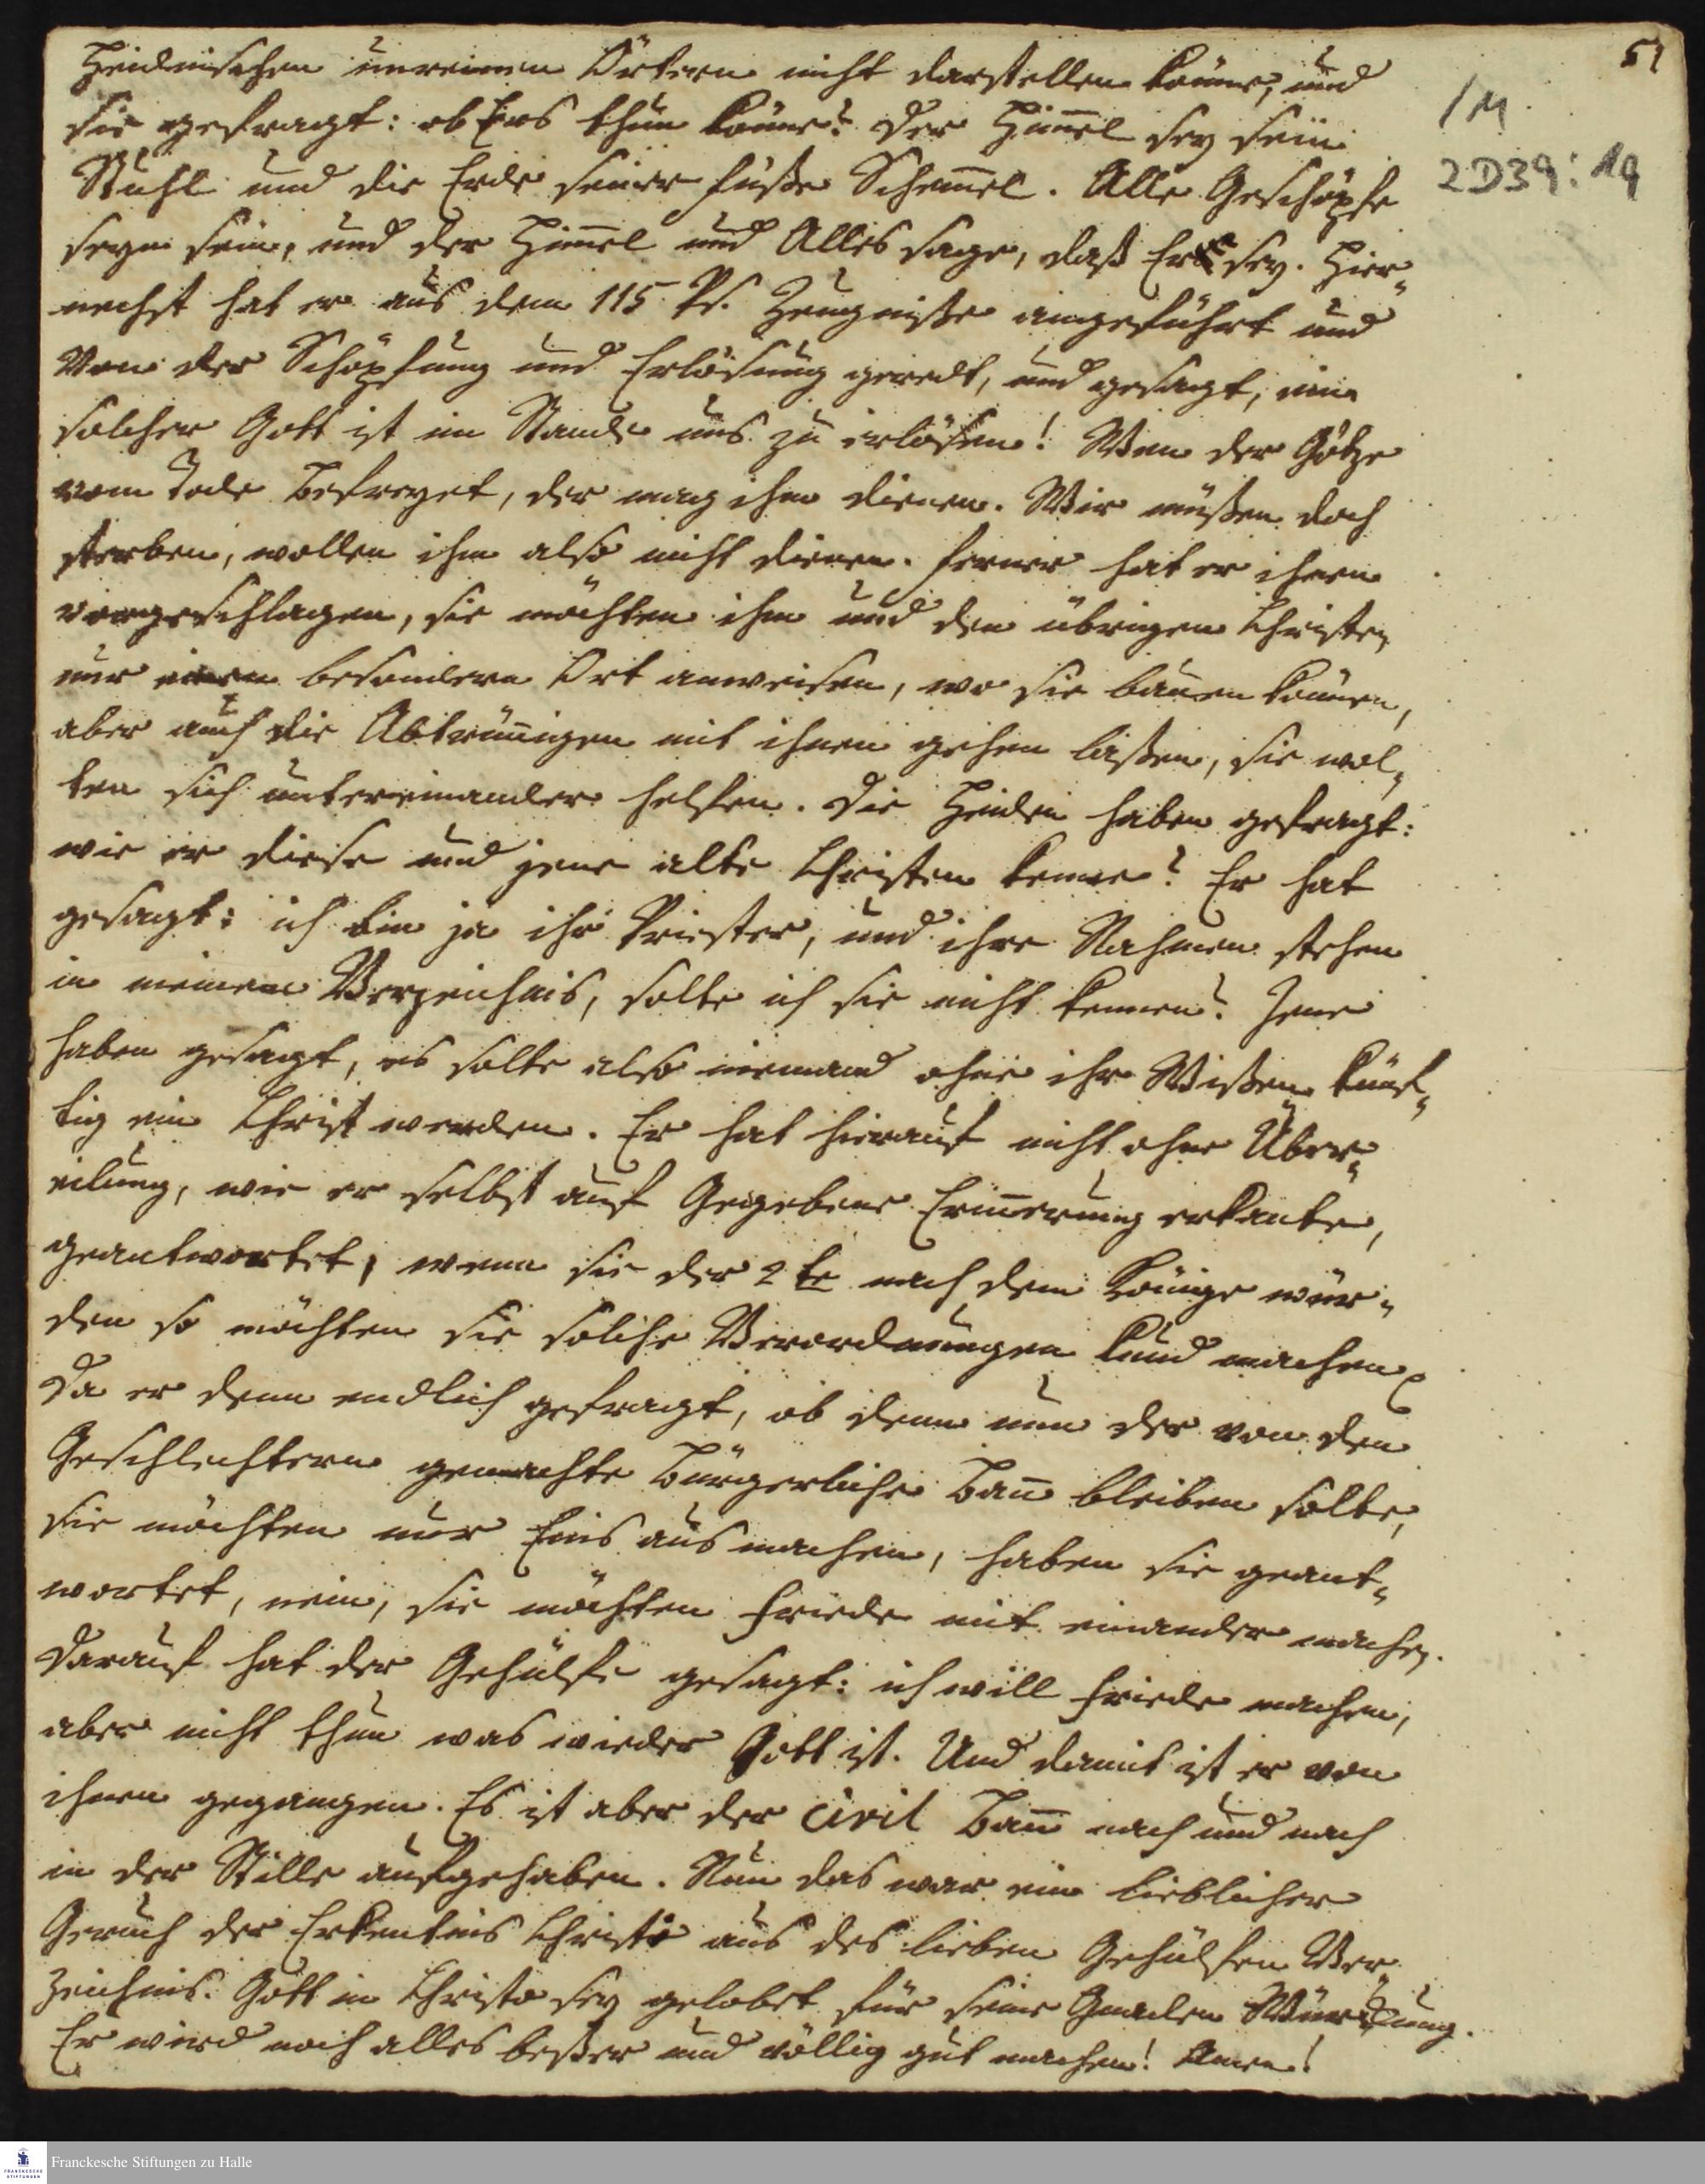 51
1M
2D39:19
Heidnischen unreinen Örtern nicht darstellen könne, und
sie gefragt: ob Ers thun könne? Der Him̅el sey sein
Stuhl und die Erde seiner Füße Schem̅el. Alle Geschöpfe
seyn sein, und der Him̅el und Alles sage, daß Er sey. Hier„
nechst hat er aus dem 115 Ps. Zeugniße angeführt und
von der Schöpfung und Erlösung geredt, und gesagt, ein
solcher Gott ist im Stande uns zu erlösen! Wen der Götze
vom Tode befreyet, der mag ihm dienen. Wir müßen doch
sterben, wollen ihm also nicht dienen. Ferner hat er ihnen
vorgeschlagen, sie möchten ihm und den übrigen Christen
nur einen besondern Ort anweisen, wo sie bauen können,
aber auch die Abtrün̅igen mit ihnen gehen laßen, sie wol„
ten sich untereinander helfen. Die Heiden haben gefragt:
wie er diese und jene alte Christen kenne? Er hat
gesagt: ich bin ja ihr Priester, und ihre Nahmen stehen
in meinem Verzeichnis, solte ich sie nicht kennen? Jene
haben gesagt, es solte also niemand ohne ihr Wißen künf„
tig ein Christ werden. Er hat hierauf nicht ohne Über„
eilung, wie er selbst auf Gegebene Erin̅erung erkante,
geantwortet, wenn sie der 2te nach dem Könige wür„
den so möchten sie solche Verordnungen kund machen
Da er denn endlich gefragt, ob denn nun der von den
Geschlechtern gemachte Bürgerliche Ban̅ bleiben solte,
sie möchten nur Eins aus machen, haben sie geant„
wortet, nein, sie möchten Friede mit einander machen.
Darauf hat der Gehülfe gesagt: ich will Friede machen,
aber nicht thun was wieder Gott ist. Und damit ist er von
ihnen gegangen. Es ist aber der Civil Ban̅ nach und nach
in der Stille aufgehaben. Nun das war ein lieblicher
Geruch der Erkentnis Christi aus des lieben Gehülfen Ver
zeichnis. Gott in Christo sey gelobet für seine Gnaden Würckung.
Er wird noch alles beßer und völlig gut machen! Amen!
Franckesche Stiftungen zu Halle
FRANCKESCHE STIFTUNGEN